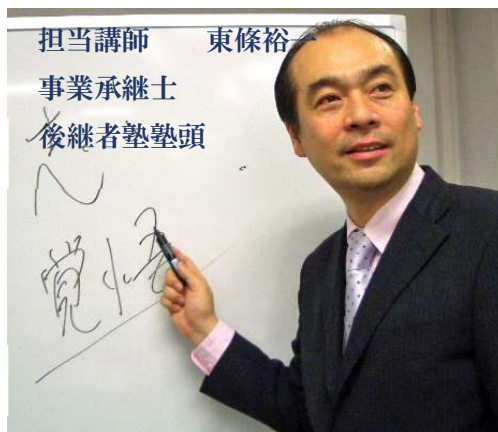 担当講師　　東條裕一
事業承継士
後継者塾塾頭
覚悟